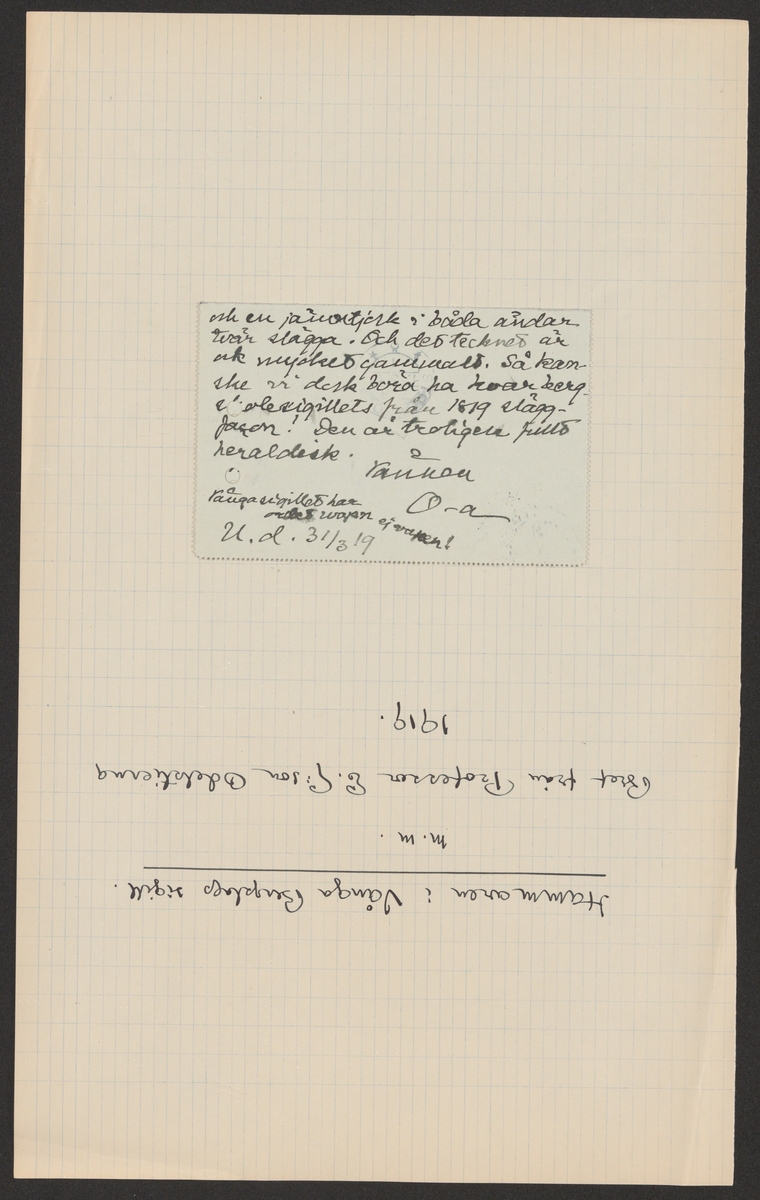 och en jämntjock i båda ändar
tvär slägga. Och det tecknet är
ok mycket gammalt. Så kan-
ske vi dock böra ha kvar berg-
skolesigillets från 1819 slägg-
fason! Den är troligen fullt
heraldisk.
Vännen
O-a
Vånga sigillet har
ordet wapn ej vapen!
U. d. 31/3 19
Hammaren i Vånga Bergslags sigill.
m. m.
Bref från Professor E. G:son Odelstierna
1919.